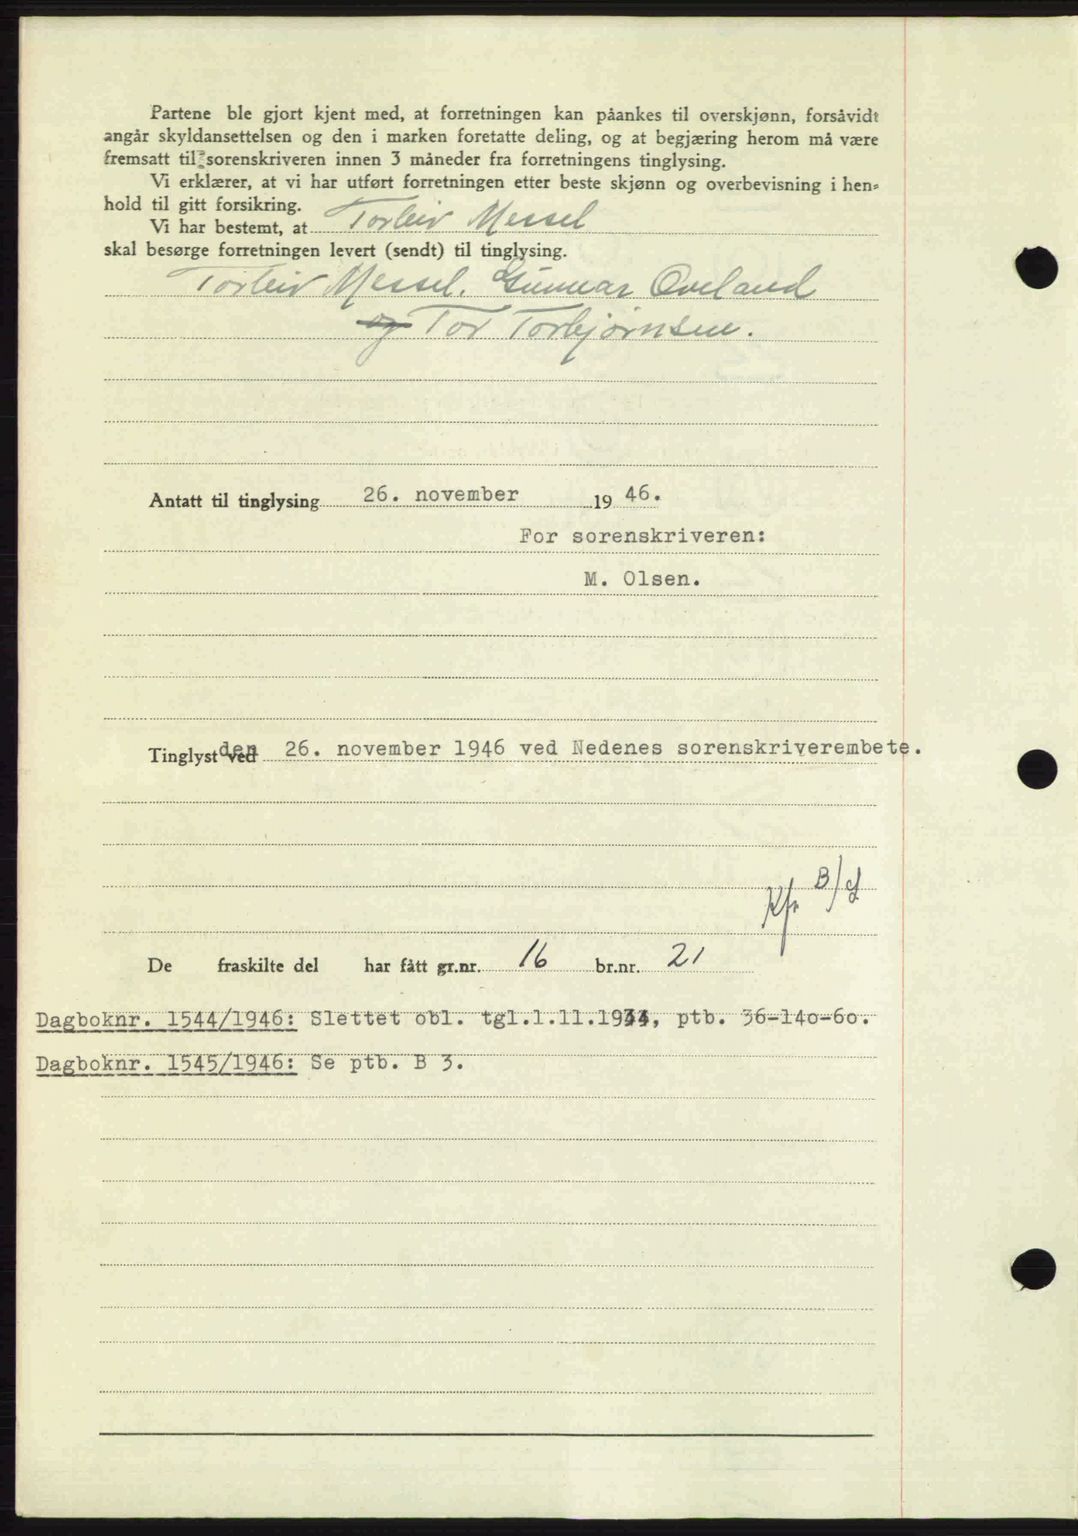 Partene ble gjort kjent med, at forretningen kan påankes til overskjønn, forsåvidt
angår skyldansettelsen og den i marken foretatte deling, og at begjæring herom må være
fremsatt til sorenskriveren innen 3 måneder fra forretningens tinglysing.
Vi erklærer, at vi har utført forretningen etter beste skjønn og overbevisning i hen=
hold til gitt forsikring.
Vi har bestemt, at Torleiv Messel
skal besørge forretningen levert (sendt) til tinglysing.
Torleiv Messel. Gunnar Oveland
og Tor Torbjørnsen.
Antatt til tinglysing 26. november 1946.
For sorenskriveren:
M. Olsen.
Tinglyst den 26. november 1946 ved Nedenes sorenskriverembete.
Kfr B/
De fraskilte del har fått gr.nr. 16 br.nr. 21
Dagboknr. 1544/1946: Slettet obl. tgl.1.11.1934, ptb. 36-140-60.
Dagboknr. 1545/1946: Se ptb. B 3.